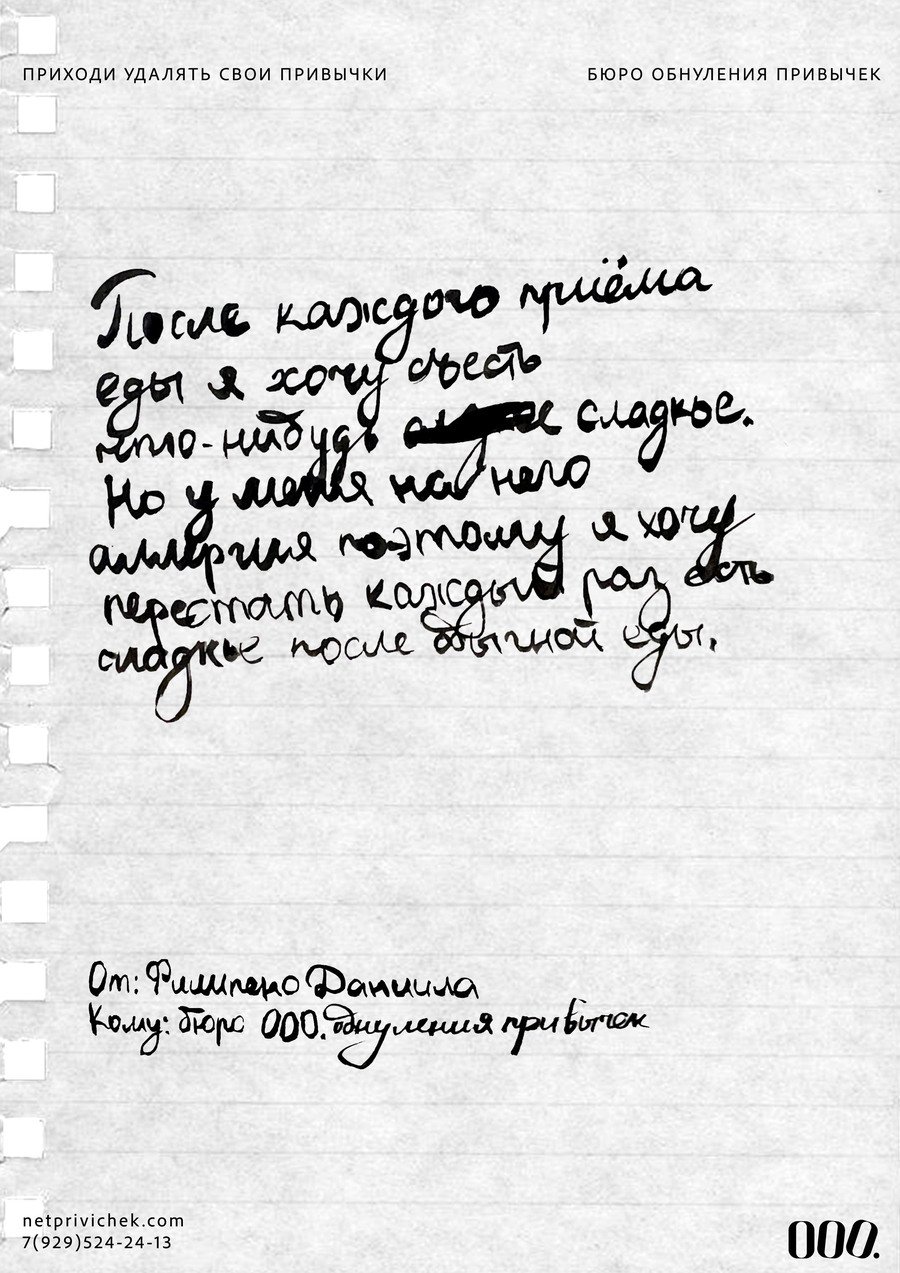 ПРИХОДИ УДАЛЯТЬ СВОИ ПРИВЫЧКИ
БЮРО ОБНУЛЕНИЯ ПРИВЫЧЕК
После каждого приёма
еды я хочу съесть
что-нибудь сладкое.
Но у меня на него
аллергия поэтому я хочу
перестать каждый раз есть
сладкое после обычной еды.
От: Филипено Даниила
Кому: бюро 000. обнуления привычек
netprivichek.com
7(929)524-24-13
000.